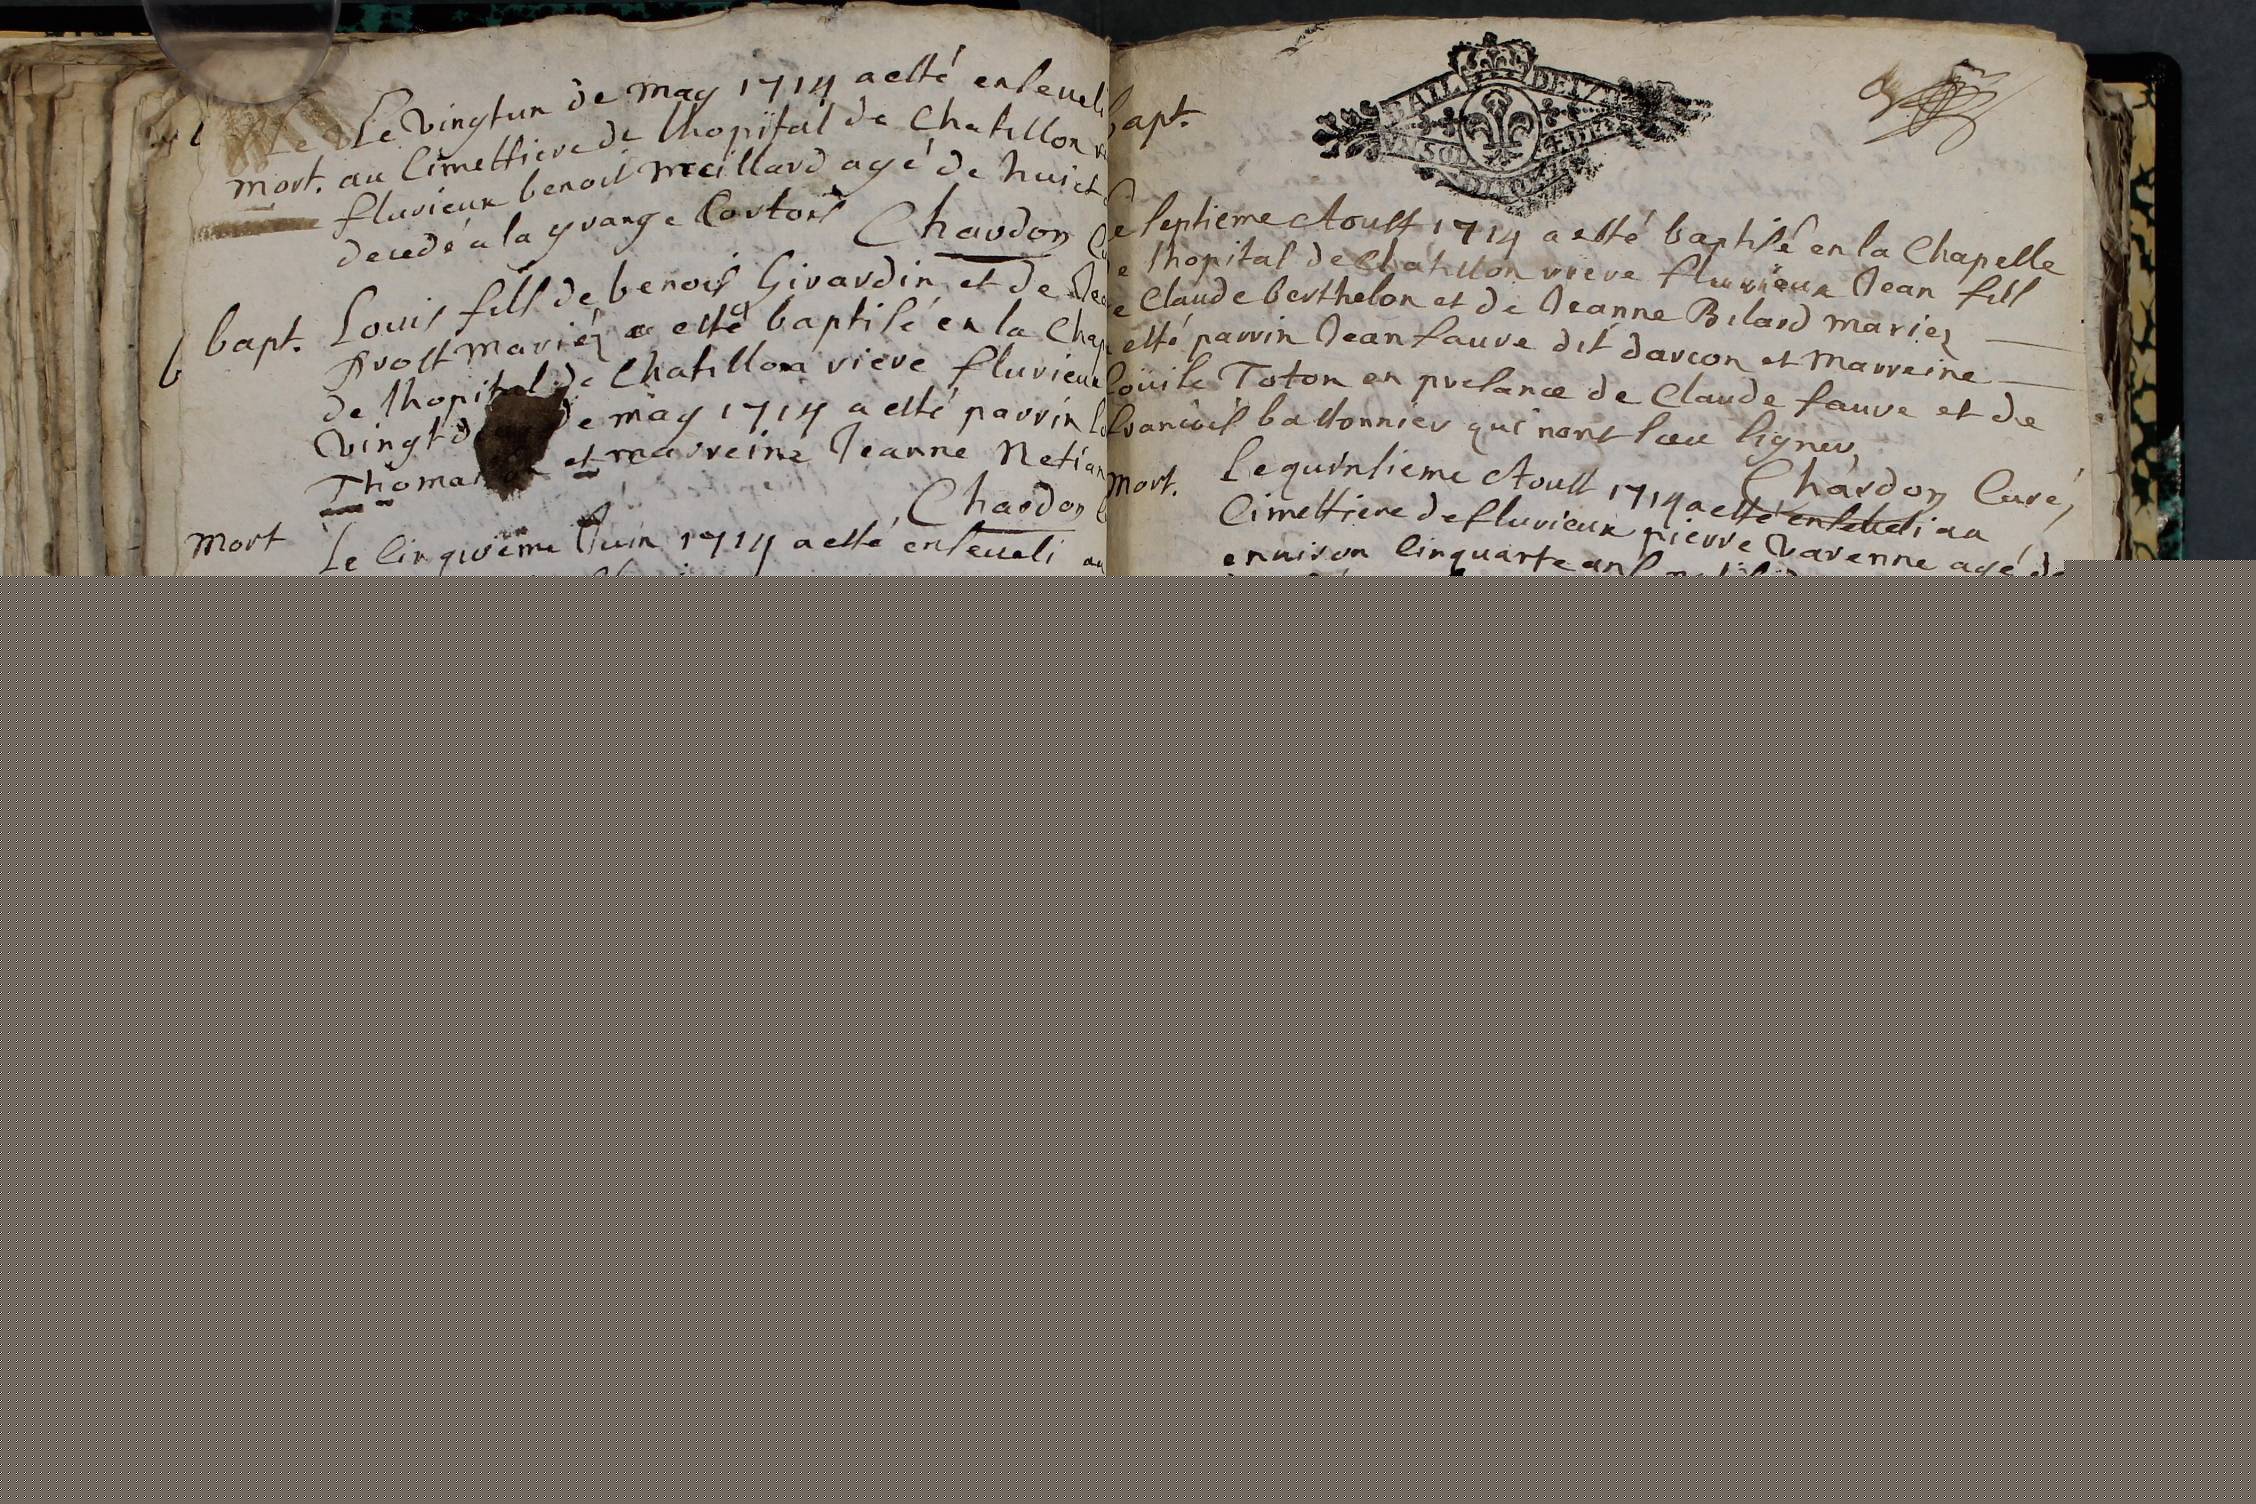 Le vingtun de may 1714 a esté enseveli
mort. au Cimettiere de lhopital de Chatillon
flurieux benoist meillard agé de huict
decedé a la grange Cortois
Chardon
bapt. Louis fils de benoist Girardin et de
prost mariéz a esté baptisé en la Chap
de lhopital de Chatillon riere flurieux
vingt de may 1714 a esté parrin
Thomas et marreine Jeanne
Chardon
mort Le Cinquieme Juin 1714 a esté enseveli au
bapt.
BAIL DEUX
SOLS
DIX
Le septieme Aoust 1714 a esté baptisé en la Chapelle
de lhopital de Chatillon riere flurieux Jean fils
de Claude berthelon et de Jeanne Bilard mariez
esté parrin Jean faure dit darcon et marreine
Louise Toton en presance de Claude faure et de
francois bastonnier qui nont sceu signer,
Chardon Curé,
mort. Le quinsieme Aoust 1714 a esté enseveli au
Cimettiere de flurieux pierre varenne agé de
environ Cinquante ans